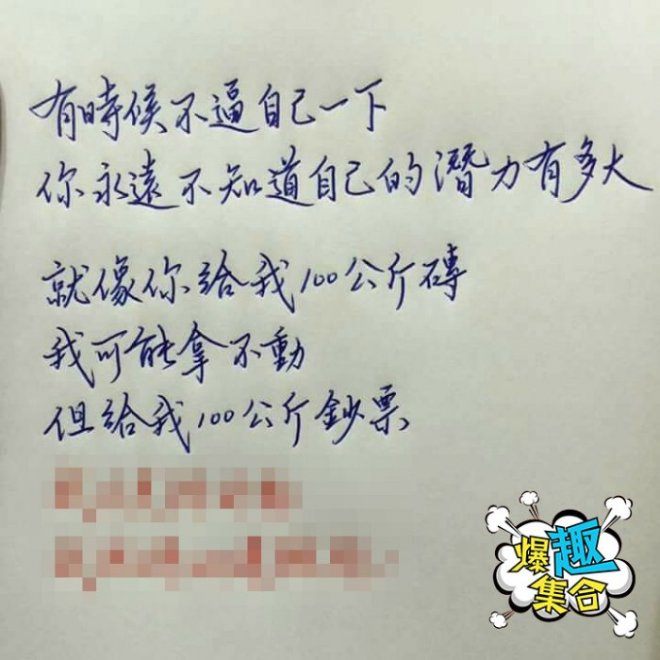 有時候不逼自己一下
你永遠不知道自己的潛力有多大
就像你給我100公斤磚
我可能拿不動
但給我100公斤鈔票
爆趣
集合